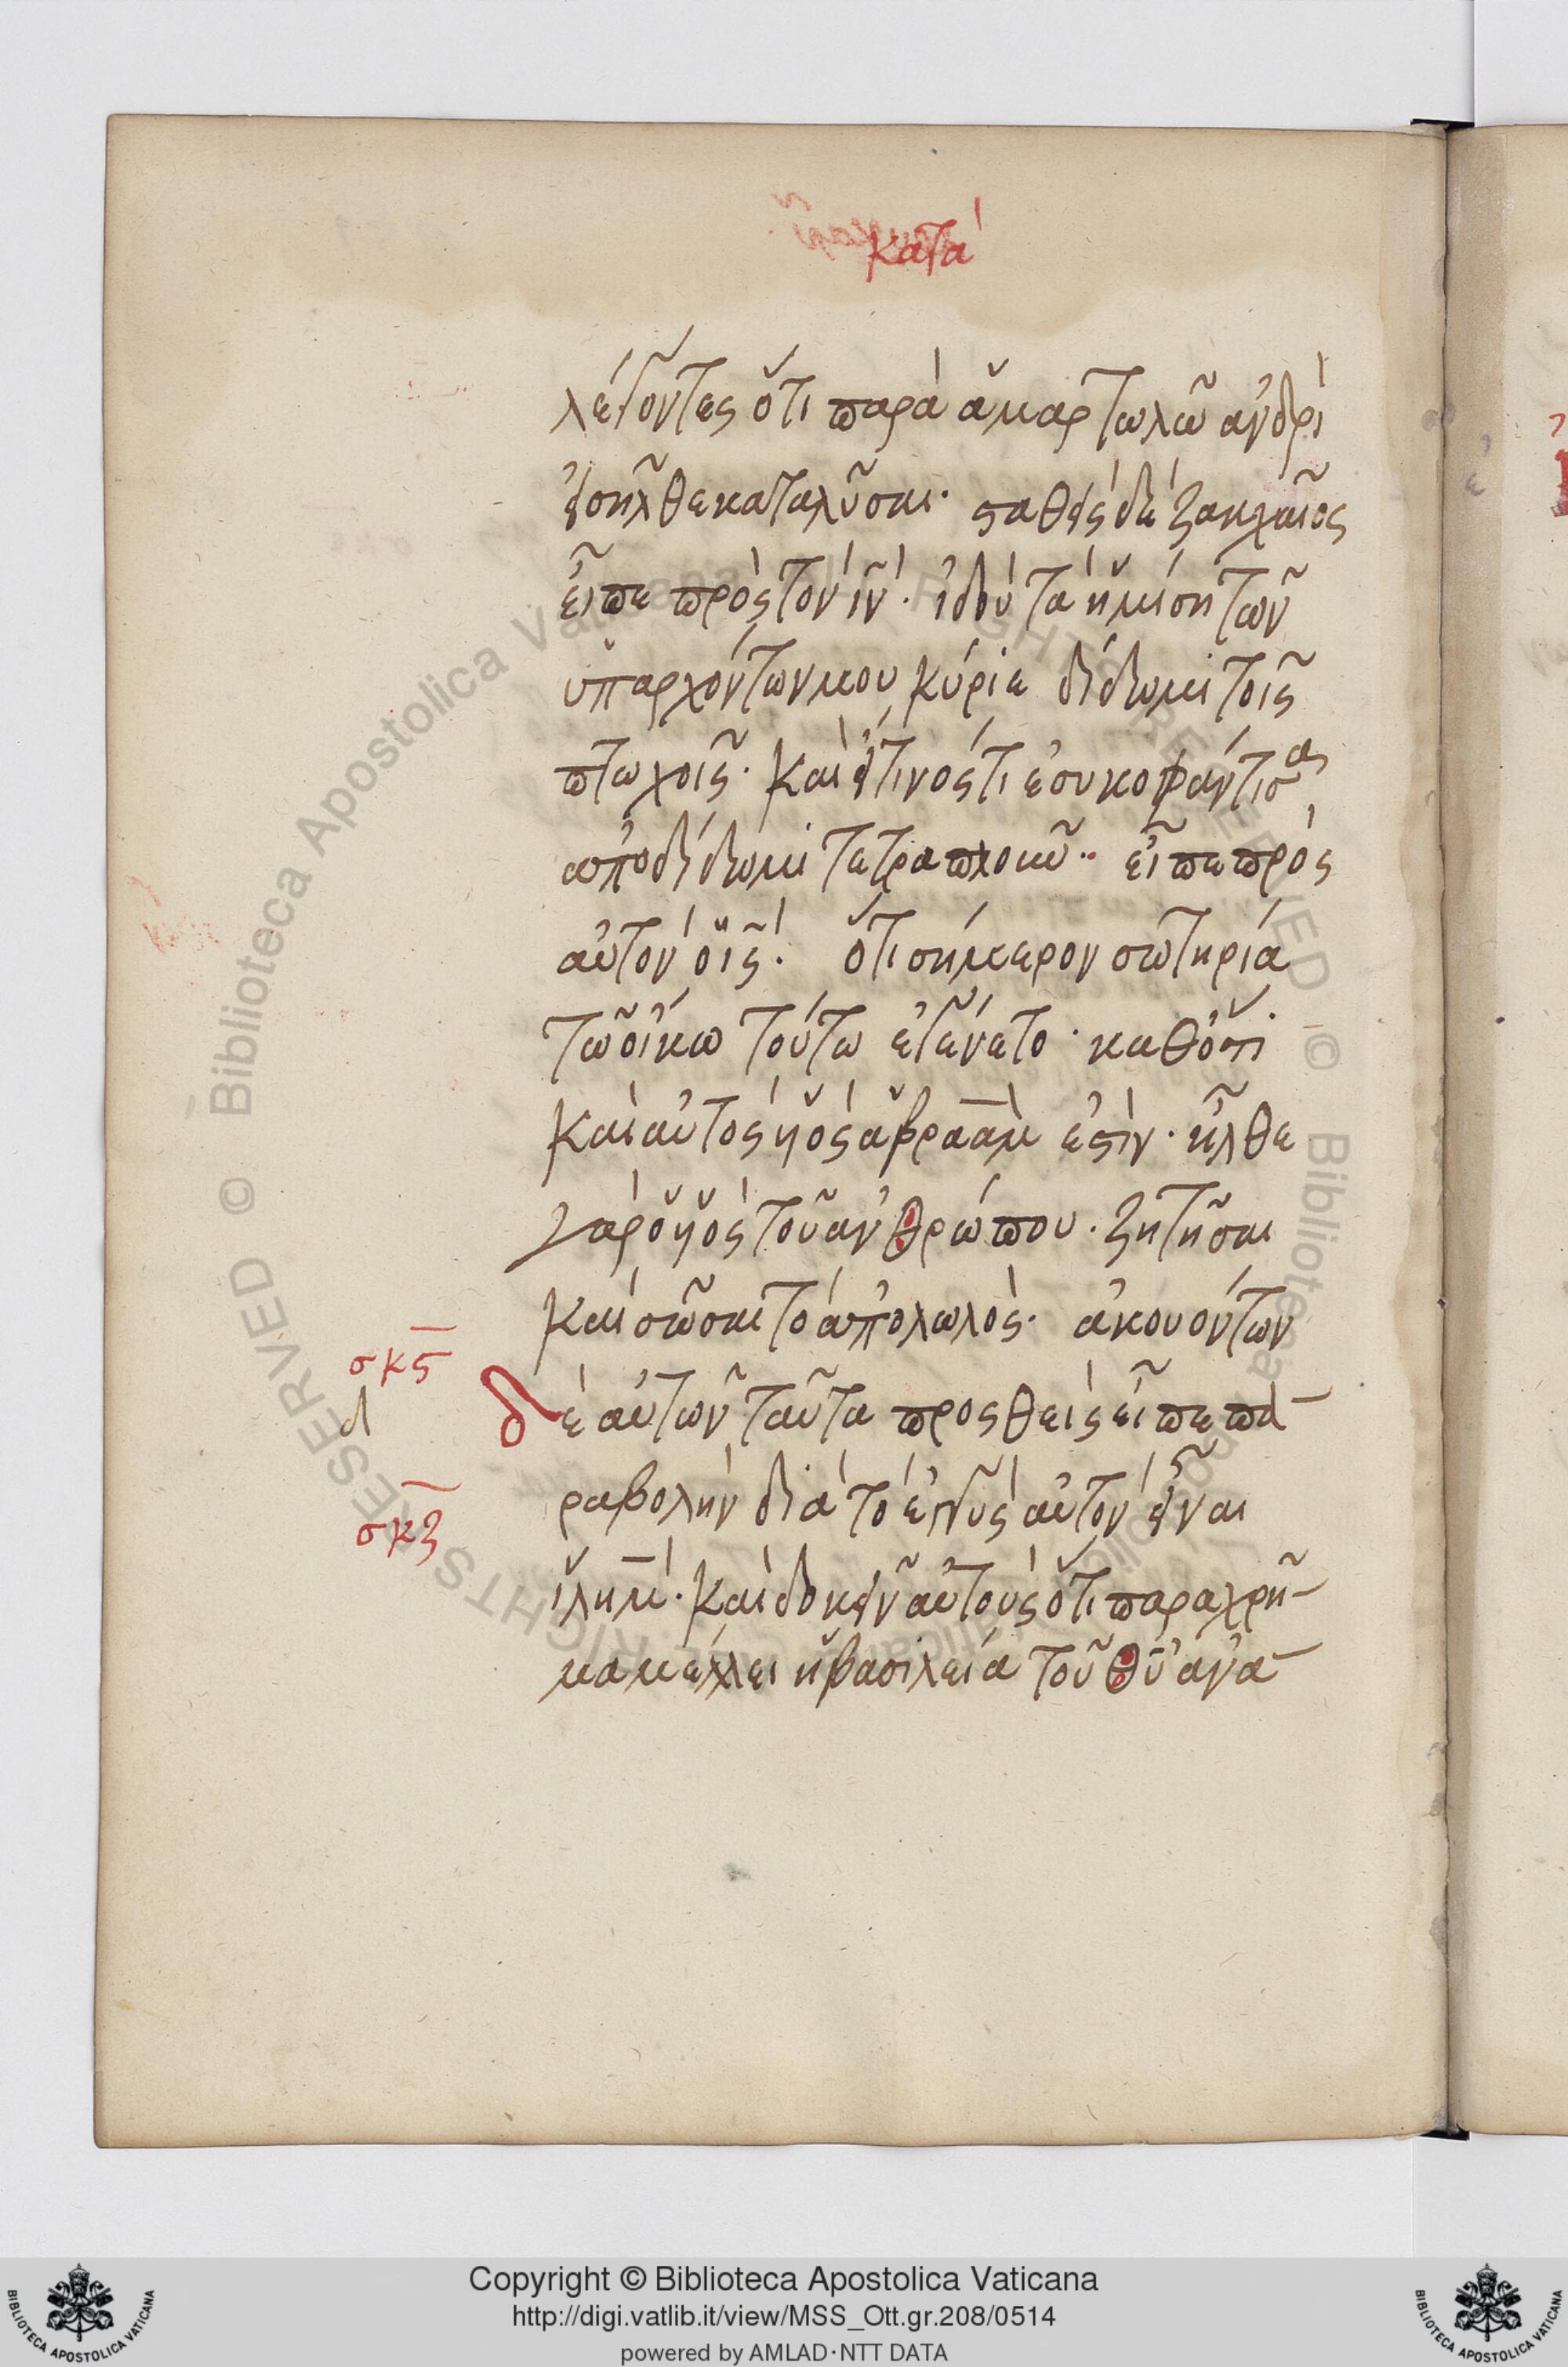 κατὰ
λέγοντες ὅτι παρὰ ἁμαρτωλῶ ἀνδρὶ
εἰσῆλθε καταλῦσαι· σταθεὶς δὲ ζακχαῖος
εἶπε πρὸς τὸν ιν· ἰδοὺ τὰ ἡμίση τῶν
ὑπαρχόντων μου κύριε δίδωμι τοῖς
πτωχοῖς· καὶ εἴ τινός τι ἐσυκοφάντισας
ἀποδίδωμι τετραπλοῦν·· εἶπε πρὸς
αὐτὸν ὁ ις· ὅτι σήμερον σωτηρία
τῶ οἴκω τούτω ἐγένετο· καθότι
καὶ αὐτὸς υἱὸς ἁβραὰμ ἐστιν· ἦλθε
γὰρ ὁ υἱὸς τοῦ ἀνθρώπου· ζητῆσαι
καὶ σῶσαι τὸ ἀπολωλός· ἀκουόντων
σκϛ
δὲ αὐτῶν ταῦτα προσθεὶς εἶπε πα-
ραβολὴν διὰ τὸ ἐγγὺς αὐτὸν εἶναι
σκζ
ἱλημ· καὶ δοκεῖν αὐτοὺς ὅτι παραχρῆ-
μα μέλλει ἡ βασιλεία τοῦ θυ ἀνα-
Copyright © Biblioteca Apostolica Vaticana
http://digi.vatlib.it/view/MSS_Ott.gr.208/0514
powered by AMLAD·NTT DATA